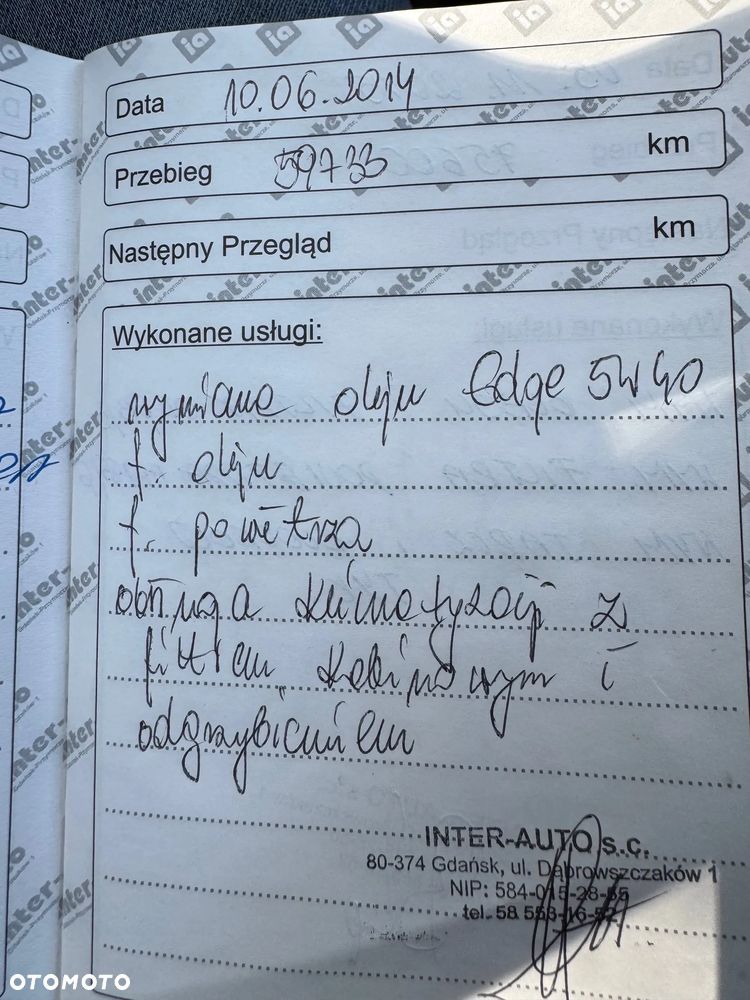 Data 10.06.2014
Przebieg 59733 km
Następny Przegląd km
Wykonane usługi:
wymiana oleju Edge 5W40
f. oleju
f. powietrza
obsługa klimatyzacji z
filtrem kabinowym i
odgrzybieniem
INTER-AUTO s.c.
80-374 Gdańsk, ul. Dąbrowszczaków 1
NIP: 584-015-28-55
tel. 58 553-16-52
OTOMOTO